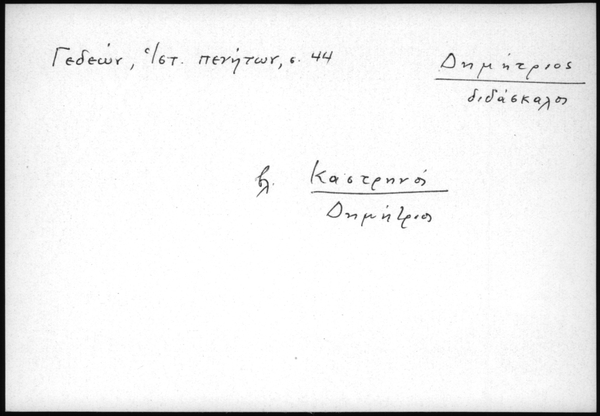 Γεδεών, Ἱστ. πενήτων, σ. 44
Δημήτριος
διδάσκαλος
βλ. Καστρηνός
Δημήτριος